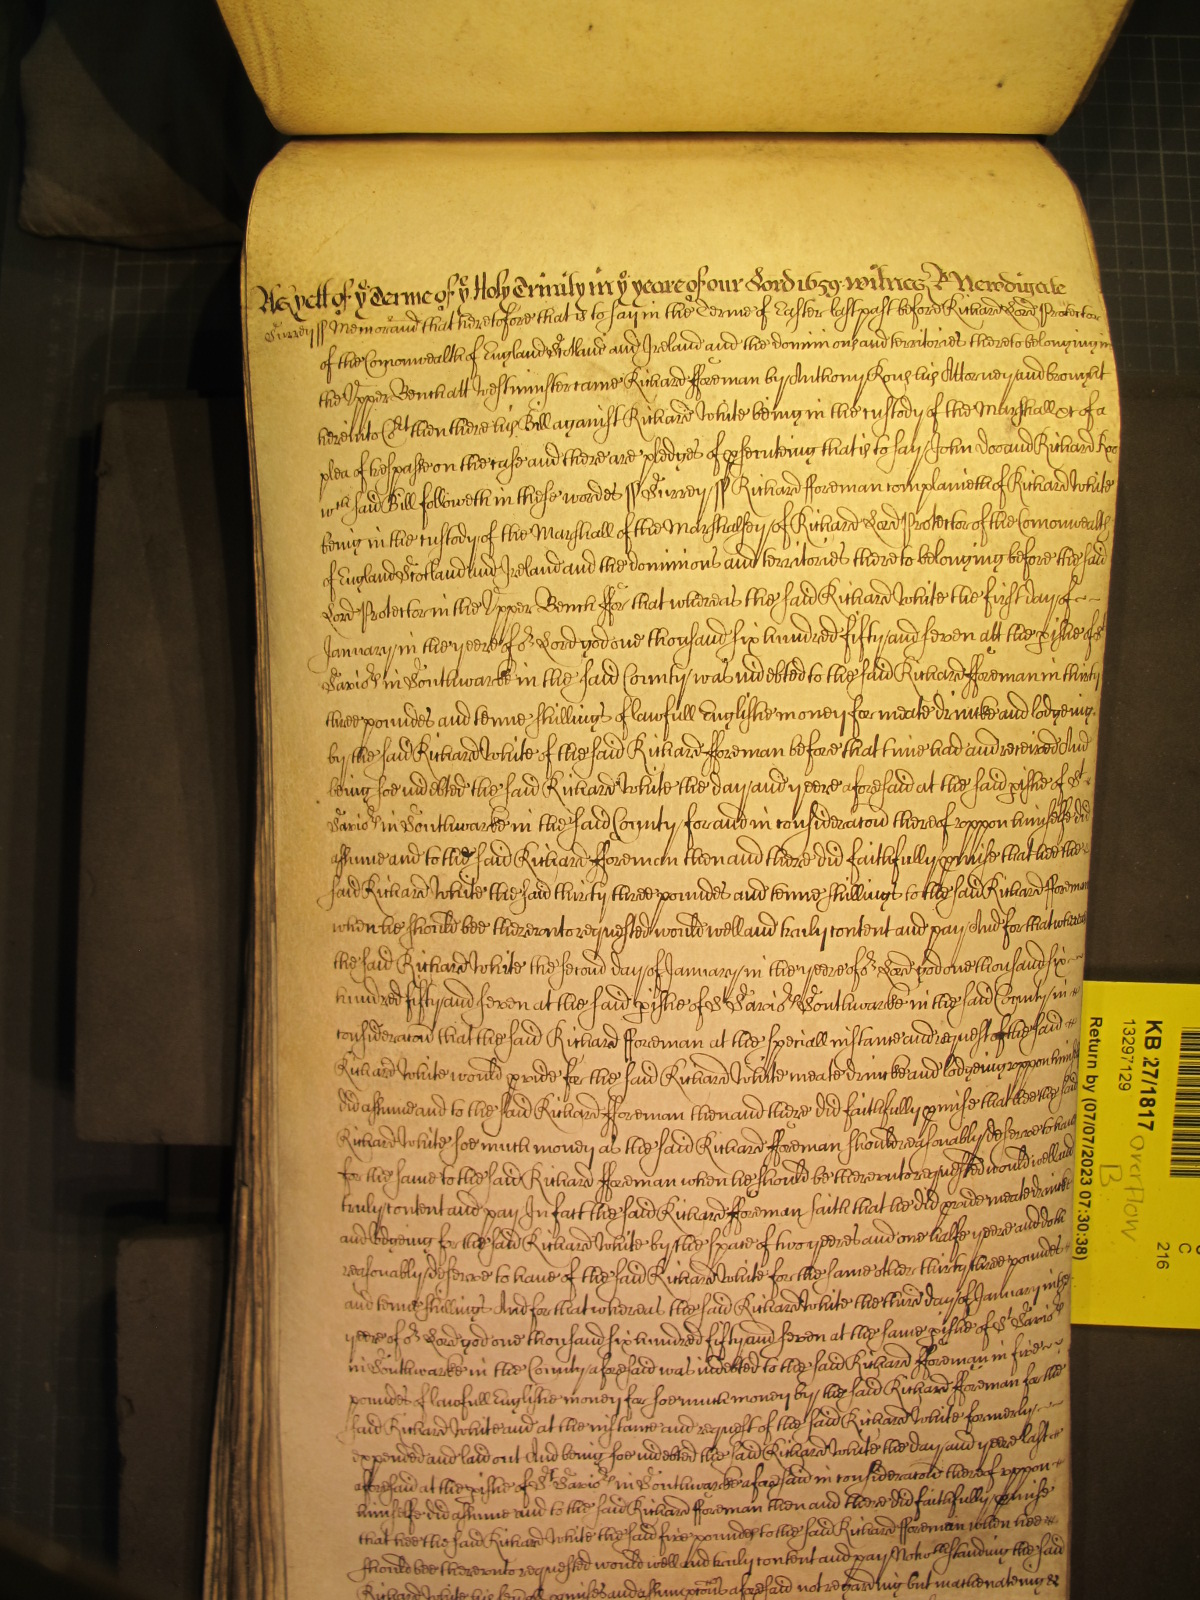 As yett of ye Terme of ye Holy Trinity in ye yeare of our Lord 1659 witnes R Newdigate
Surrey ss Memorand that heretofore that is to say in the Terme of Easter last past before Richard Lord Protector
of the Comonwealth of England Scotland and Ireland and the dominions and territories thereto belonging in
the Upper Bench att Westminster came Richard fforeman by Anthony Rous his Attorney and brought
here into Crt then there his Bill against Richard White being in the custody of the Marshall &c of a
plea of trespasse on the case and there are pledges of psecuteing that is to say John Doo and Richard Roo
wch said Bill followeth in these wordes ss Surrey ss Richard fforeman complaineth of Richard White
being in the custody of the Marshall of the Marshalsey of Richard Lord Protector of the Comonwealth
of England Scotland and Ireland and the dominions and territories thereto belonging before the said
Lord Protector in the Upper Bench ffor that whereas the said Richard White the first day of
January in the yeere of or Lord god one thousand six hundred fifty and seven att the pishe of St
Savior in Southwarke in the said County was indebted to the said Richard fforeman in thirty
three poundes and tenne shillings of lawfull Englishe money for meate drincke and lodgeing
by the said Richard White of the said Richard fforeman before that time had and received And
being soe indebted the said Richard White the day and yeere aforesaid at the said pishe of St
Savior in Southwarke in the said County for and in consideracon thereof vppon himselfe did
assume and to the said Richard fforeman then and there did faithfully pmise that hee the
said Richard White the said thirty three poundes and tenne shillings to the said Richard fforeman
when he should bee therevnto requested would well and truly content and pay And for that whereas
the said Richard White the second day of January in the yeere of or Lord god one thousand six
hundred fifty and seven at the said pishe of St Savior Southwarke in the said County in
consideracon that the said Richard fforeman at the speciall instance and request of the said
Richard White would pvide for the said Richard White meate drincke and lodgeing vppon himself
did assume and to the said Richard fforeman then and there did faithfully pmise that hee the said
Richard White soe much money as the said Richard fforeman should reasonably deserve to have
for the same to the said Richard fforeman when he should be therevnto requested would well and
truly content and pay In fact the said Richard fforeman saith that he did pvide meate drincke
and lodgeing for the said Richard White by the space of two yeeres and one halfe yeere and doth
reasonably deserve to have of the said Richard White for the same other thirty three poundes
and tenne shillings And for that whereas the said Richard White the third day of January in the
yeere of or Lord god one thousand six hundred fifty and seven at the same pishe of St Savior
in Southwarke in the County aforesaid was indebted to the said Richard fforeman in five
poundes of lawfull Englishe money for soe much money by the said Richard fforeman for the
said Richard White and at the instance and request of the said Richard White formerly
expended and laid out And being soe indebted the said Richard White the day and yeere last
aforesaid at the pishe of St Savior in Southwarke aforesaid in consideracon thereof vppon
himselfe did assume and to the said Richard fforeman then and there did faithfully pmise
that hee the said Richard White the said five poundes to the said Richard fforeman when hee
should bee therevnto requested would well and truly content and pay Notwthstanding the said
Richard White his pmises and assumptons aforesaid not regarding but machenateing &
KB 27/1817
13297129
Return by (07/07/2023 07:30:38)
overflow
B
C
216